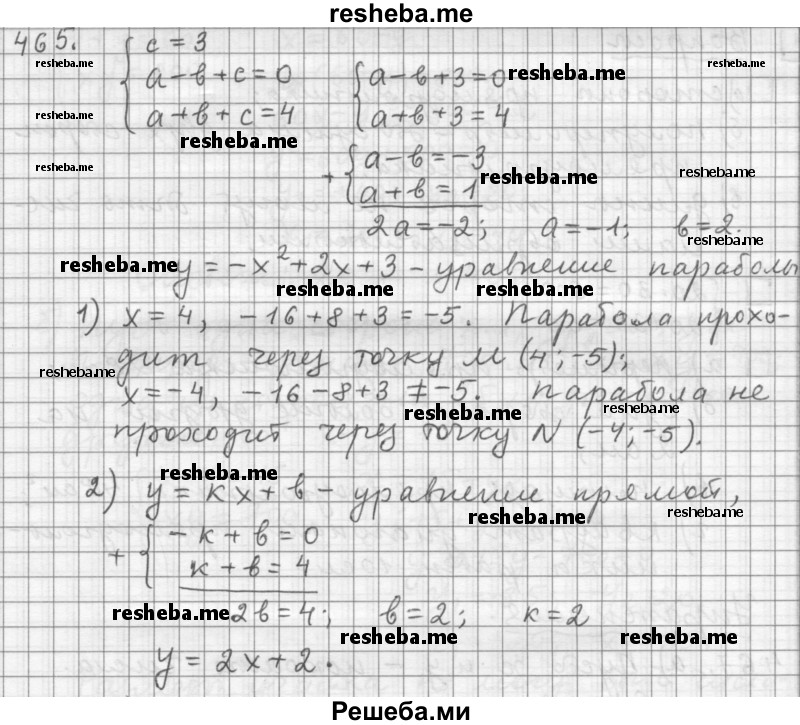 resheba.me
465. { c = 3
resheba.me
a - в + c = 0 { a - в + 3 = 0 resheba.me resheba.me
resheba.me a + в + c = 4 a + в + 3 = 4
resheba.me
resheba.me + { a - в = -3 resheba.me
a + в = 1 resheba.me
2a = -2; a = -1; в = 2.
resheba.me
resheba.me y = -x² + 2x + 3 - уравнение параболы
resheba.me resheba.me
1) x = 4, -16 + 8 + 3 = -5. Парабола прохо-
resheba.me дит через точку M (4; -5);
x = -4, -16 - 8 + 3 ≠ -5. Парабола не
resheba.me resheba.me
проходит через точку N (-4; -5).
resheba.me
2) y = кx + в - уравнение прямой,
resheba.me resheba.me
+ { - к + в = 0
к + в = 4
resheba.me 2в = 4; в = 2; к = 2
resheba.me resheba.me
y = 2x + 2.
Решеба.ми